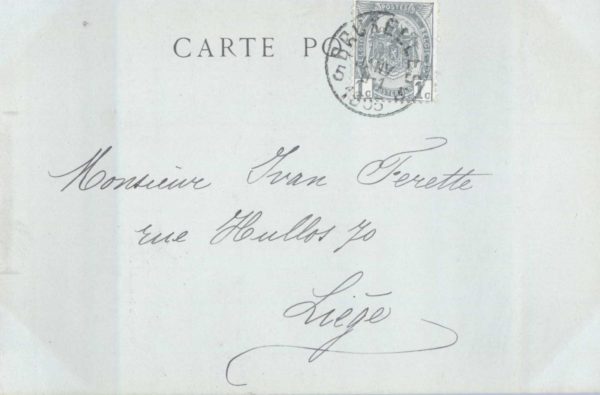 CARTE PO
BRUXELLES
5
1905
POSTES
1c 1c
Monsieur Ivan Ferette
rue Hullos 70
Liége